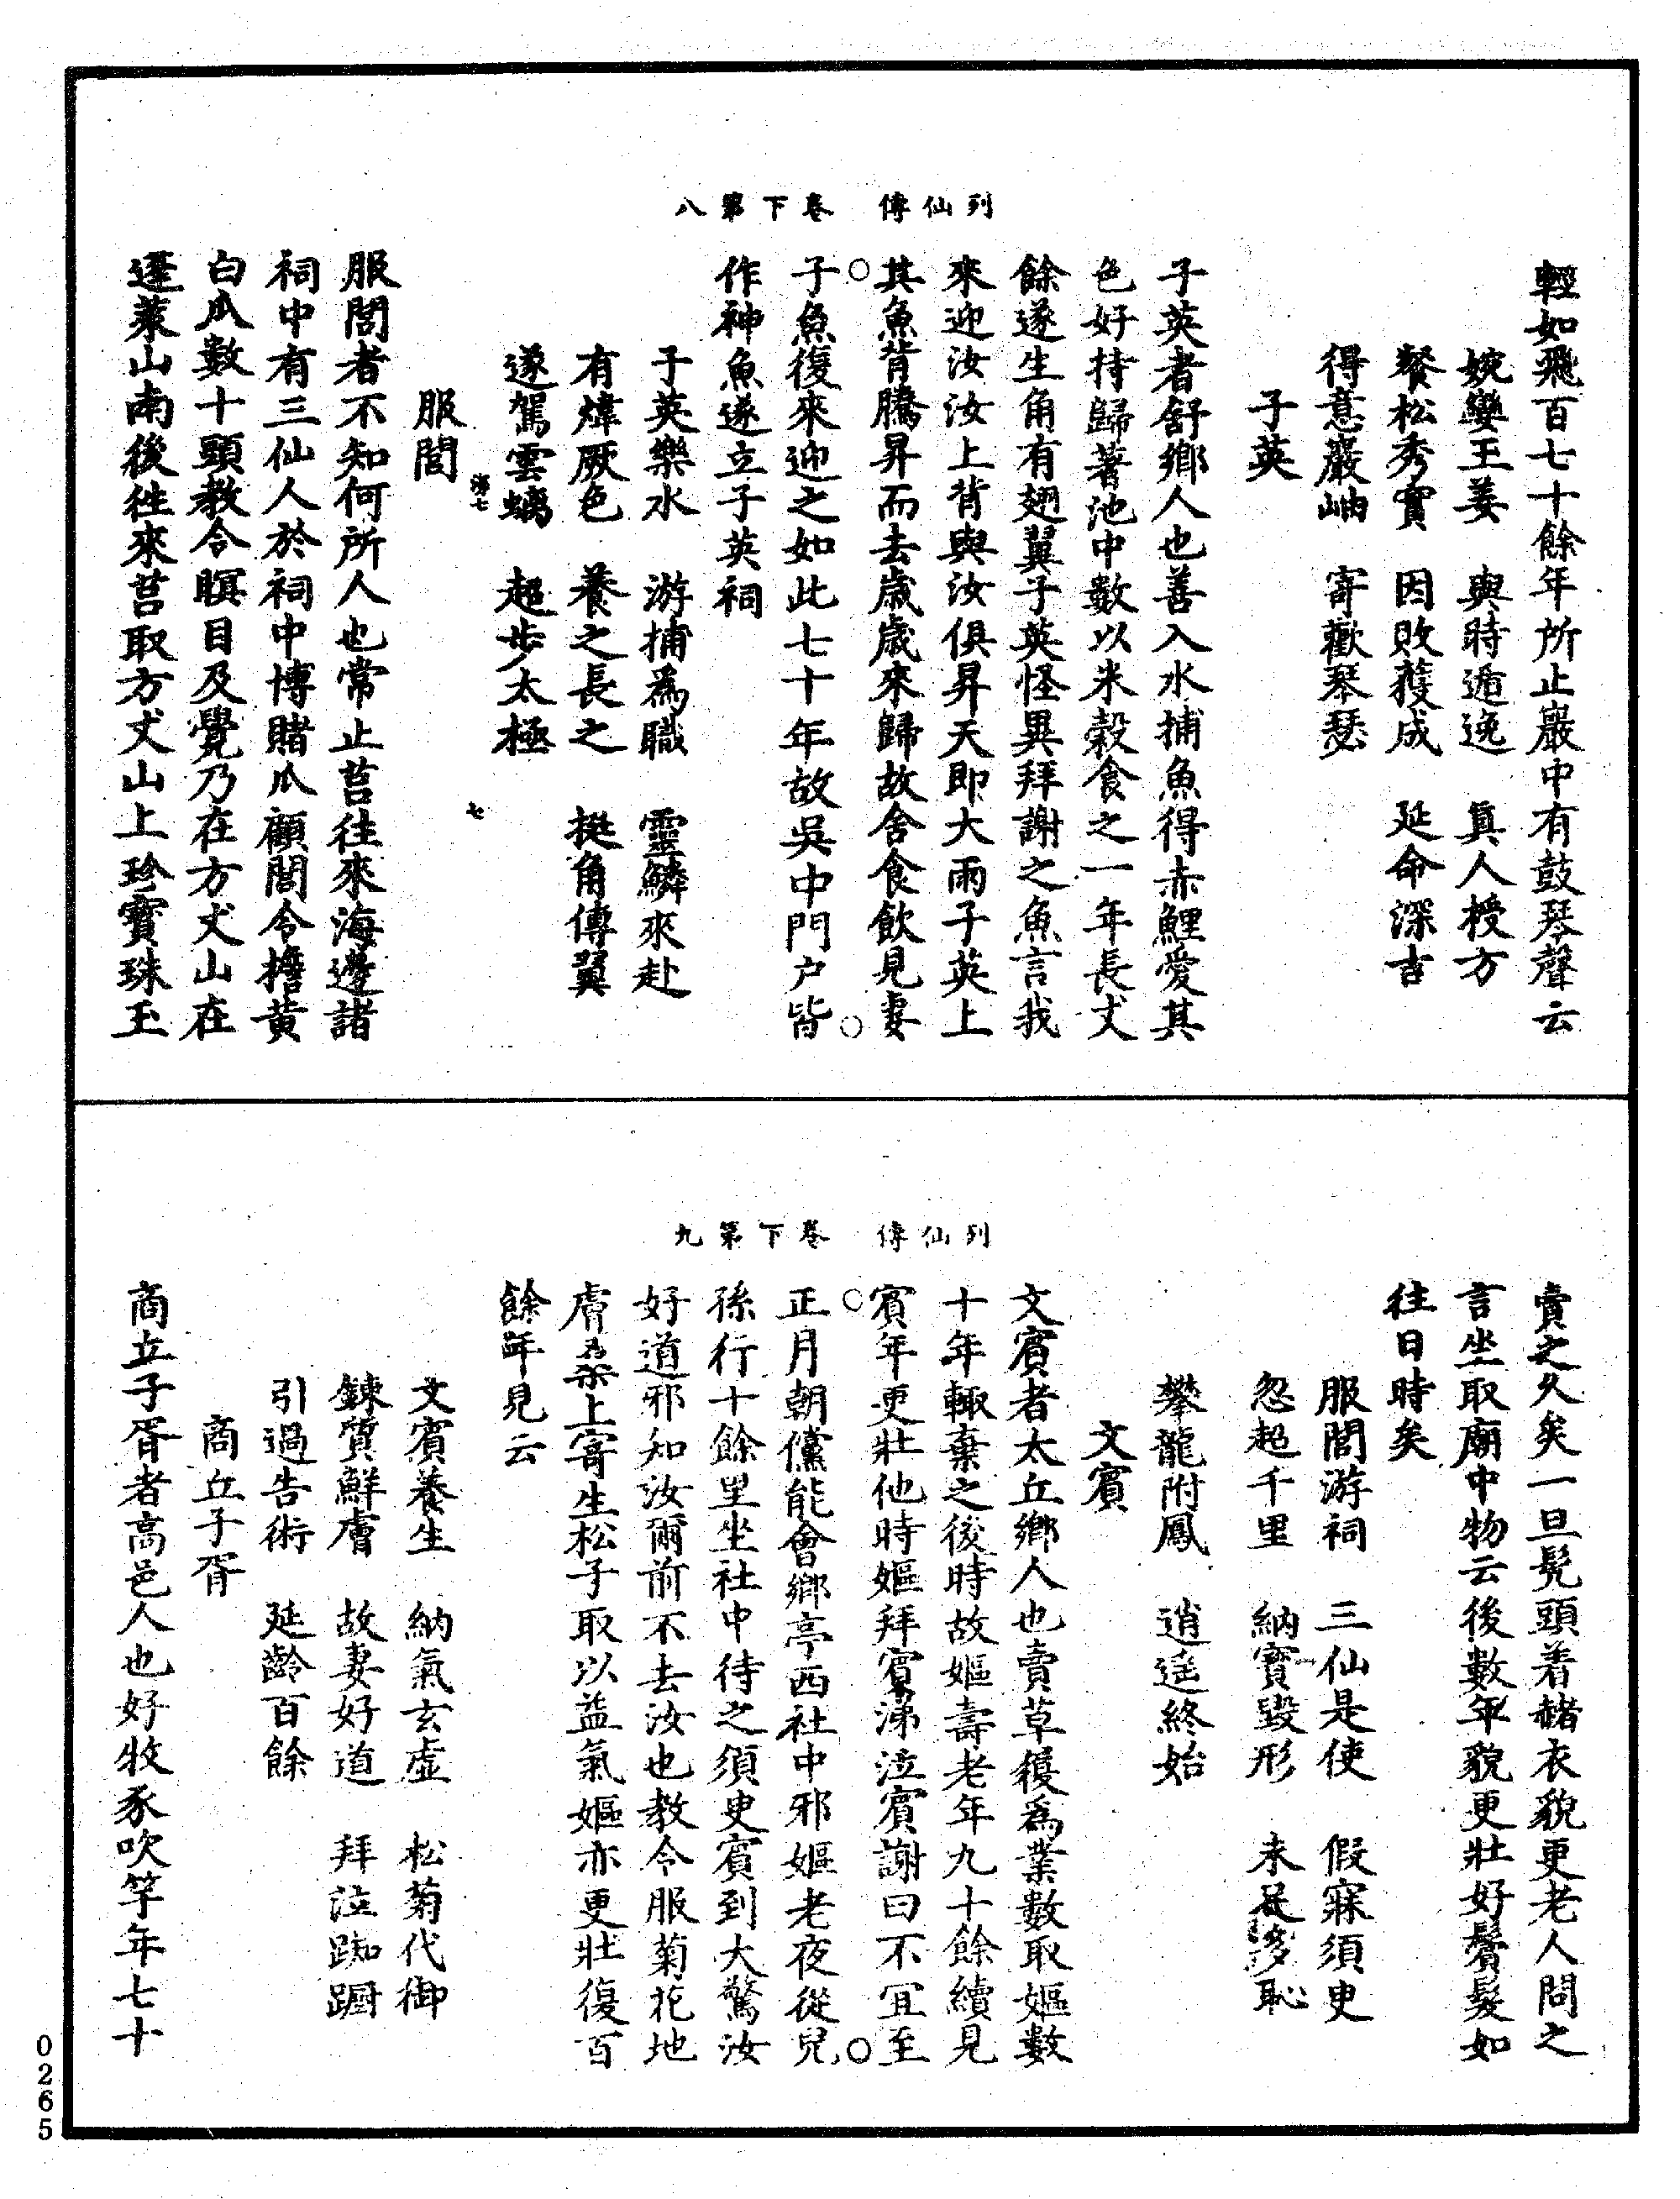 列仙傳　卷下第八
輕如飛百七十餘年所止巖中有鼓琴聲云
婉孌王姜　與時遁逸　真人授方
餐松秀實　因敗獲成　延命深吉
得意巖岫　寄歡琴瑟
子英
子英者舒鄉人也善入水捕魚得赤鯉愛其
色好持歸著池中數以米穀食之一年長丈
餘遂生角有翅翼子英怪異拜謝之魚言我
來迎汝汝上背與汝俱昇天即大雨子英上
其魚背騰昇而去歲歲來歸故舍食飲見妻
子魚復來迎之如此七十年故吳中門户皆
作神魚遂立子英祠
子英樂水　游捕為職　靈鱗來赴
有煒厥色　養之長之　挺角傅翼
遂駕雲螭　超步太極
海七　七
服閭
服閭者不知何所人也常止莒往來海邊諸
祠中有三仙人於祠中博賭瓜顧閭令擔黃
白瓜數十頭教令瞑目及覺乃在方丈山在
蓬萊山南後往來莒取方丈山上珍寶珠玉
列仙傳　卷下第九
賣之久矣一旦髡頭着赭衣貌更老人問之
言坐取廟中物云後數年貌更壯好鬢髮如
往日時矣
服閭游祠　三仙是使　假寐須臾
忽超千里　納寶毀形　未足多恥
攀龍附鳳　逍遙終始
文賓
文賓者太丘鄉人也賣草履為業數取嫗數
十年輒棄之後時故嫗壽老年九十餘續見
賓年更壯他時嫗拜賓涕泣賓謝曰不宜至
正月朝儻能會鄉亭西社中邪嫗老夜從兒
孫行十餘里坐社中待之須臾賓到大驚汝
好道邪知汝爾前不去汝也教令服菊花地
膚桑上寄生松子取以益氣嫗亦更壯復百
餘年見云
文賓養生　納氣玄虛　松菊代御
鍊質鮮膚　故妻好道　拜泣踟躕
引過告術　延齡百餘
商丘子胥
商丘子胥者高邑人也好牧豕吹竽年七十
0265